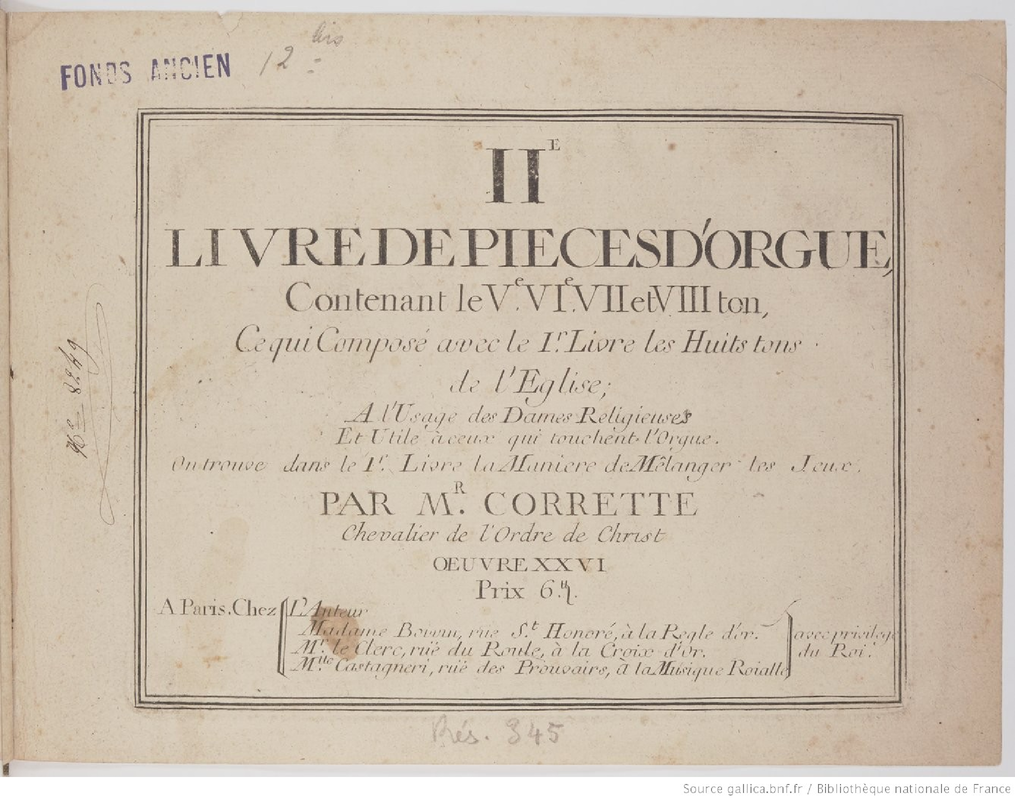 FONDS ANCIEN 12 bis
II^E
LIVRE DE PIECES D'ORGUE,
Contenant le V.^e VI.^e VII et VIII ton,
Ce qui Composé avec le I.^r Livre les Huits tons
de l'Eglise;
A l'Usage des Dames Religieuses
Et Utile à ceux qui touchent l'Orgue.
On trouve dans le 1.^r Livre la Maniere de Mêlanger les Jeux.
PAR M.^R CORRETTE
Chevalier de l'Ordre de Christ
OEUVRE XXVI
Prix 6.^tt
A Paris. Chez L'Auteur
Madame Boivin, ruë S.^t Honoré, à la Regle d'or.
M.^r le Clerc, ruë du Roule, à la Croix d'Or.
M.^lle Castagneri, ruë des Prouvairs, à la Musique Roialle
avec privilege
du Roi.
Rés. 345
Source gallica.bnf.fr / Bibliothèque nationale de France